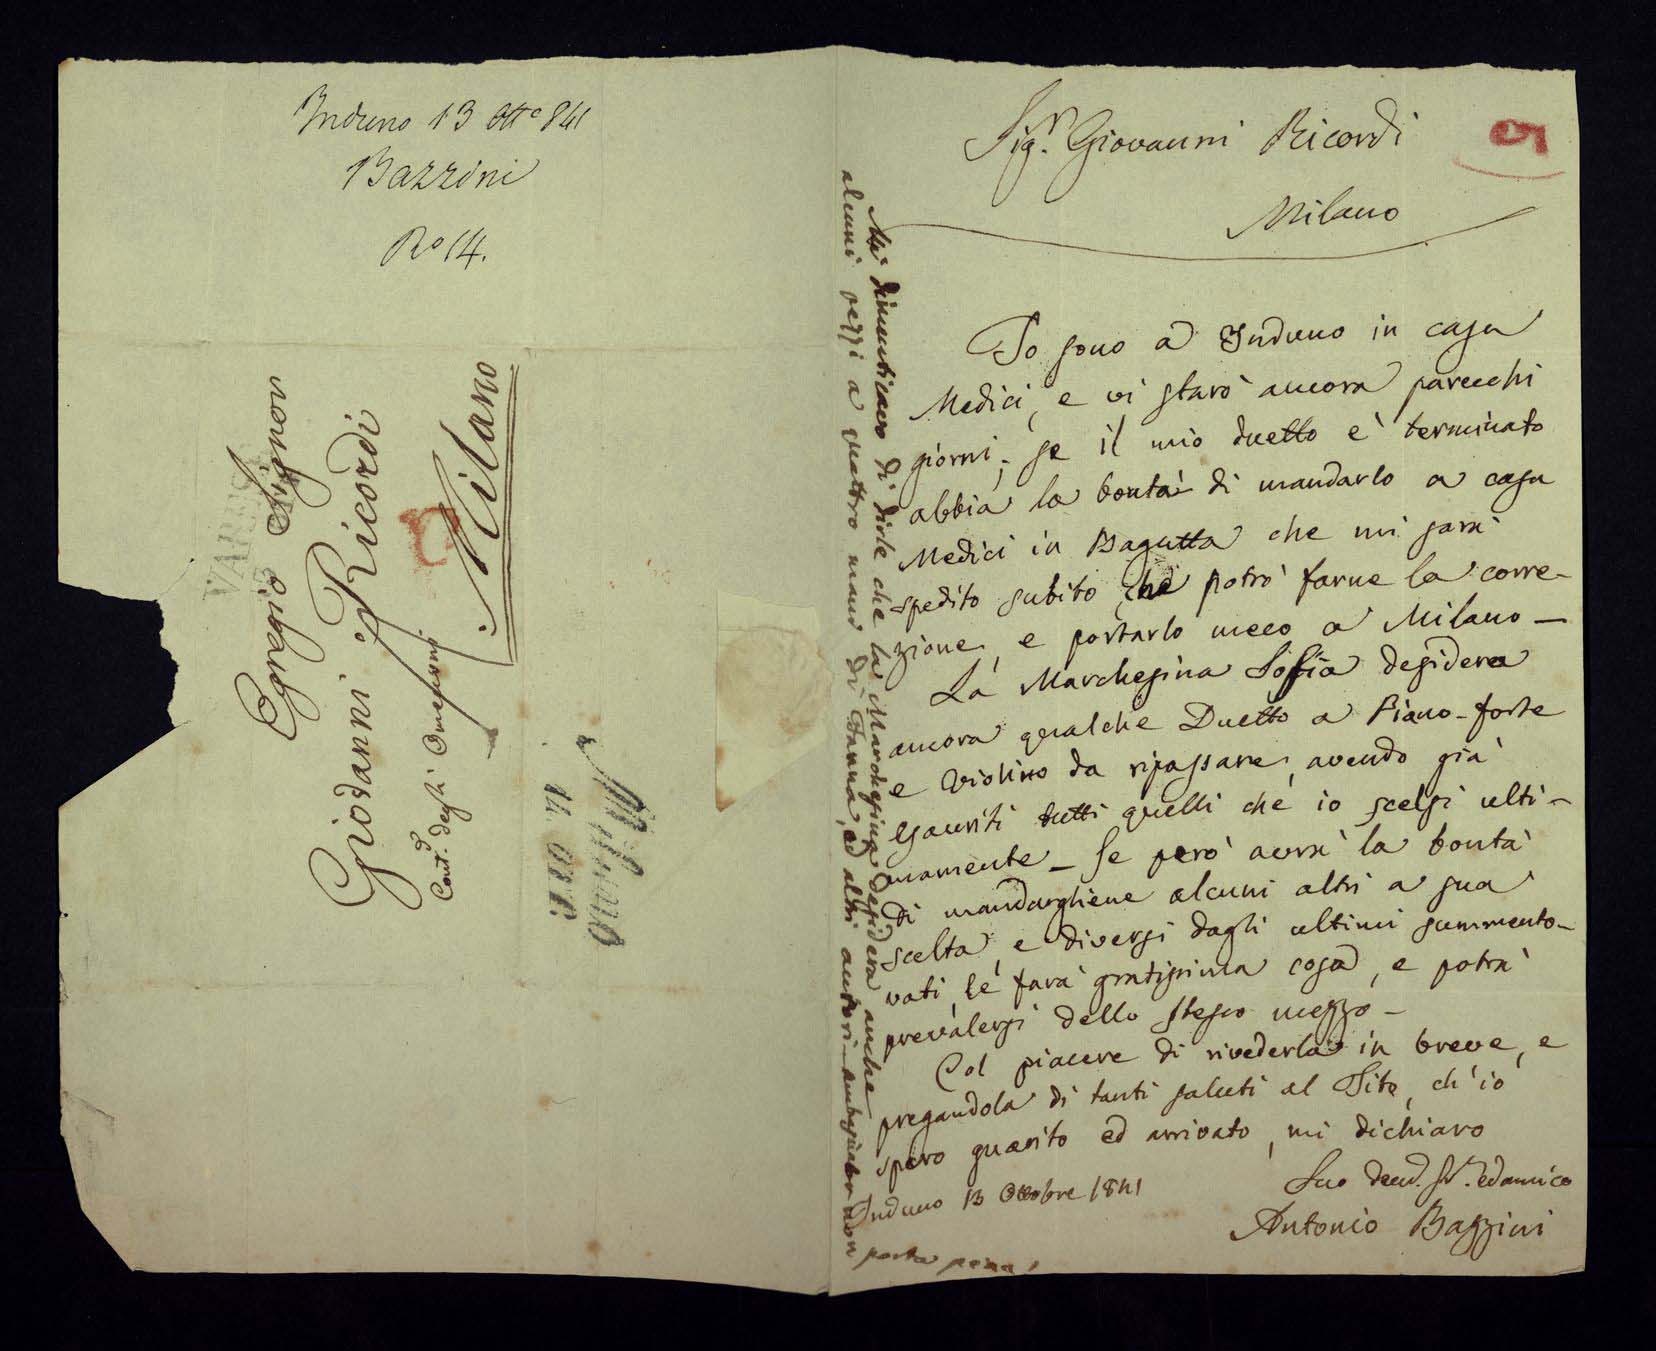 Induno 13 Ott.e 841
Bazzini
Ro 14.
VARESE
Egregio Signor
Giovanni Ricordi
Cont.a degli Omenoni
Milano
Milano
14 OTT.
Sig.r Giovanni Ricordi
Milano
Io sono a Induno in casa
Medici, e vi starò ancora parecchi
giorni; se il mio duetto è terminato
abbia la bontà di mandarlo a casa
Medici in Bagutta che mi sarà
spedito subito, che potrò farne la corre-
zione, e portarlo meco a Milano -
La Marchesina Sofia desidera
ancora qualche Duetto a Piano-forte
e Violino da ripassare, avendo già
esauriti tutti quelli che io scelsi ulti-
mamente - Se però avrà la bontà
di mandargliene alcuni altri a sua
scelta, e diversi dagli ultimi summento-
vati, le farà gratissima cosa, e potrà
prevalersi dello stesso mezzo -
Col piacere di rivederla in breve, e
pregandola di tanti saluti al Tito, ch'io
spero guarito ed arrivato, mi dichiaro
Induno 13 Ottobre 1841
Suo dev.d Sr. ed amico
Antonio Bazzini
Mi dimenticavo di dirle che la Marchesina desidera anche
alcuni pezzi a quattro mani di Fanna, ed altri autori - ambasciator non
porta pena!